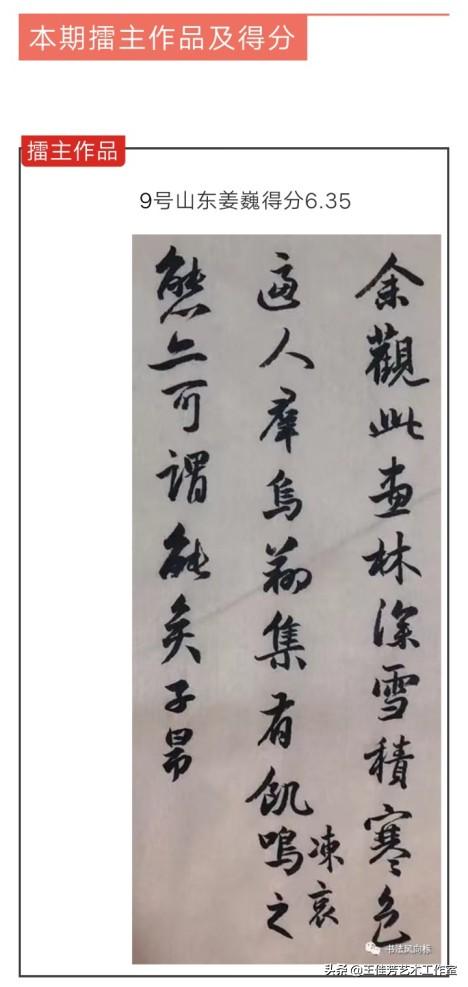 本期擂主作品及得分
擂主作品
9号山东姜巍得分6.35
余觀此畫林深雪積寒色
逼人羣烏翔集有飢鳴之
凍哀
態亦可謂能矣子昂
书法风向标
头条@王佳芳艺术工作室